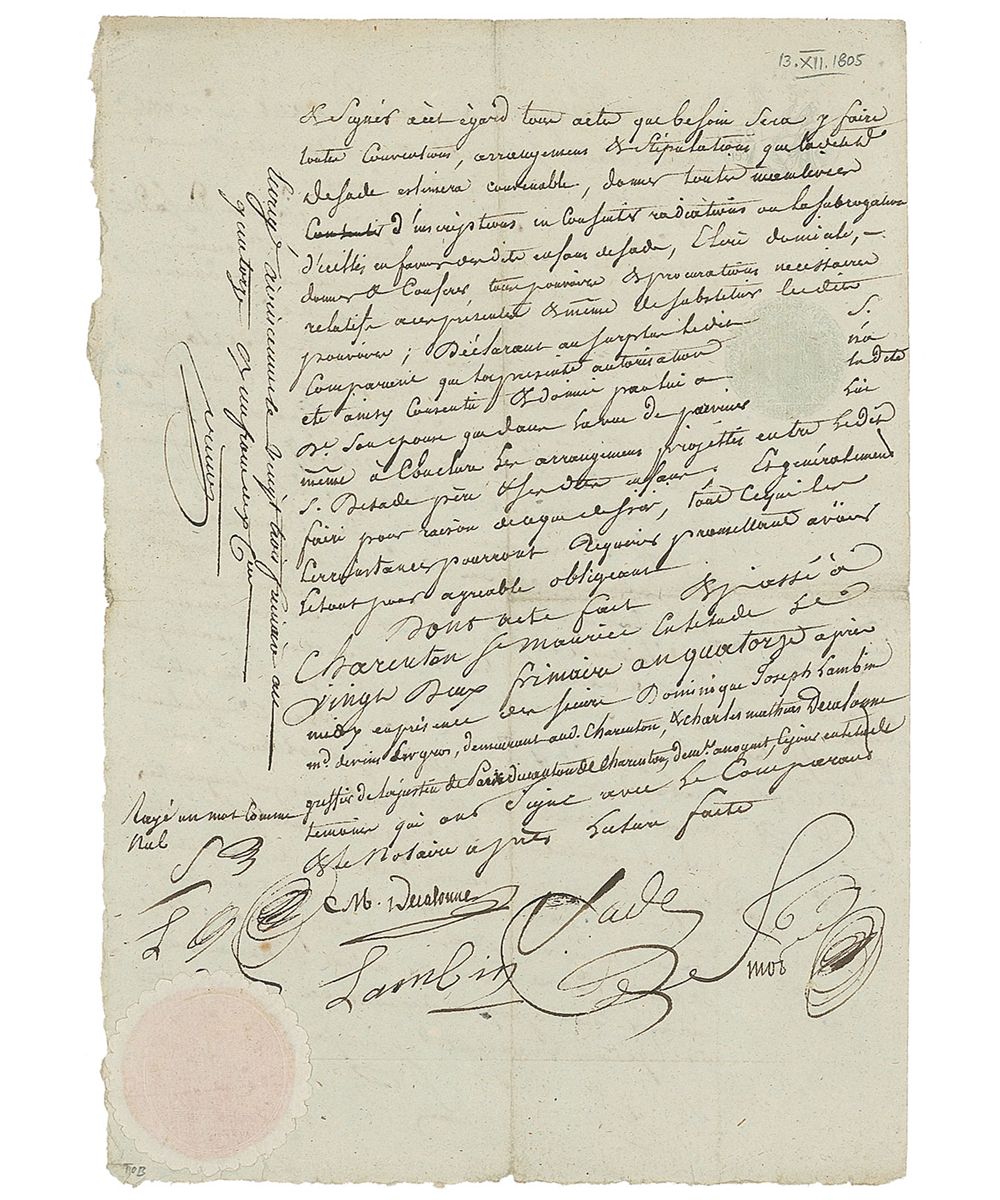 13.XII.1805
& Signés à cet égard tous actes que besoin Sera y faire
toutes Conventions, arrangemens & Stipulations que
desade estimera convenable, donner toutes mainlevées
d'inscriptions en Consentir radiations ou la subrogation
d'icelles en faveur desdits enfans desade, Elire domicile,
donner & Conferer tous pouvoirs & procurations necessaires
relatifs a ces présentes & même de substituer lesdits
pouvoirs ; Déclarant au surplus ledit S.
Comparant que la présente autorisation n'a
été ainsy Consentie & donnée par lui a la Dite
De. Son epouse que dans la vue de parvenir lui
même à Conclure les arrangemens projettés entre ledit
S. Desade père & ses dits enfans. Et généralement
faire pour raison de ce que dessus, tout ce que les
circonstances pourront Requerir promettant avoir
le tout pour agreable obligeant
Dont acte fait & passé à
Charenton St. Maurice en l'etude Le
vingt Deux frimaire an quatorze après
midy en présence des sieurs Dominique Joseph Lambin
md. de vins En gros, demeurant aud. Charenton, & Charles mathieu Decalonne
greffier de la justice de Paix du canton de Charenton, demt. au
temoins qui ont Signé avec le Comparant
& le Notaire après Lecture faite
Rayé un mot Comme
Nul
S
L
M. Decalonne
Sade
Lambin
De
mot
Enreg. à vincennes le vingt trois frimaire an
quatorze